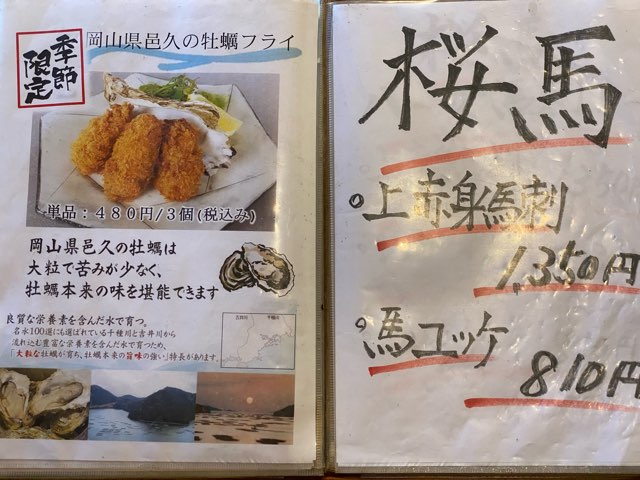 季節
限定
岡山県邑久の牡蠣フライ
単品：480円/3個(税込み)
岡山県邑久の牡蠣は
大粒で苦みが少なく、
牡蠣本来の味を堪能できます
良質な栄養素を含んだ水で育つ。
名水100選にも選ばれている千種川と吉井川から
流れ込む豊富な栄養素を含んだ水で育つため、
「大粒な牡蠣が育ち、牡蠣本来の旨味の強い」特長があります。
桜馬
上赤身馬刺
1,350円
馬ユッケ
810円